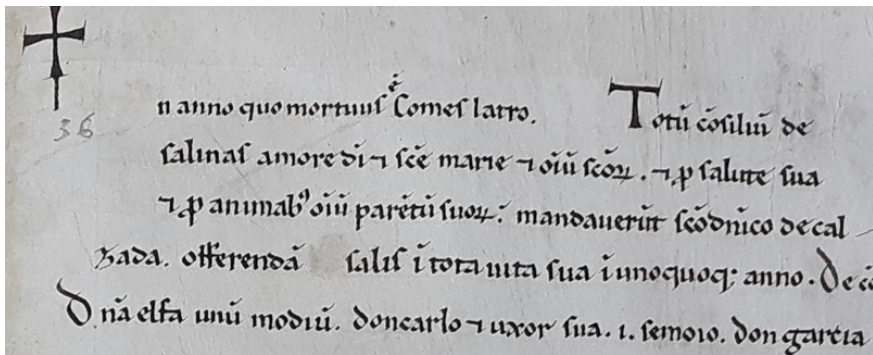 36
n anno quo mortuus ē Comes latro. Totū cōsiliū de
salinas amore dī ⁊ scē marie ⁊ oīū scōꝝ. ⁊ ꝓ salute sua
⁊ ꝓ animabꝰ oīū parētū suoꝝ: mandaverūt scō dnīco de cal
zada. offerendā salis ī tota vita sua ī unoquoqꝫ anno. De
Dnā elfa unū modiū. don carlo ⁊ uxor sua. ı. semoıo. don garcia